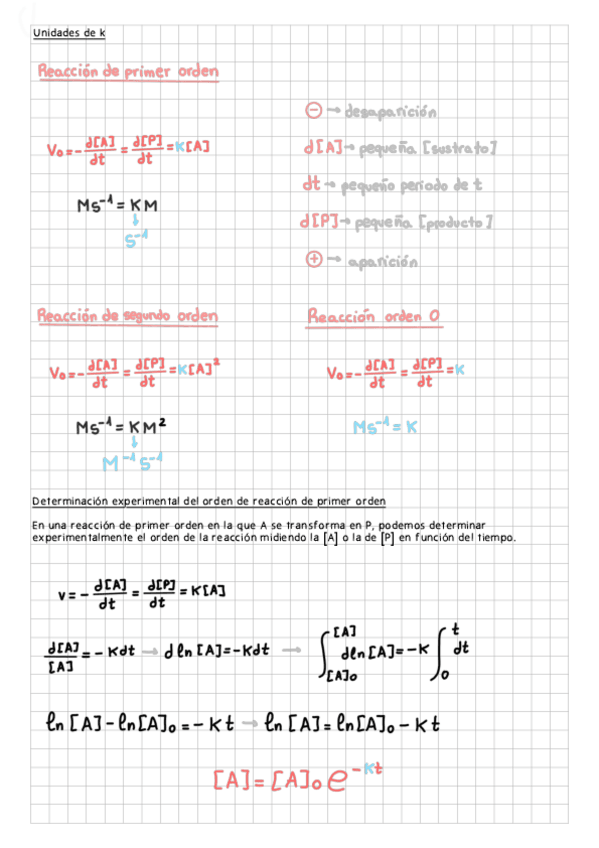 Unidades de k
Reacción de primer orden
⊖ → desaparición
V₀ = - d[A]/dt = d[P]/dt = K[A]
d[A] → pequeña [sustrato]
dt → pequeño periodo de t
Ms⁻¹ = KM
↓
s⁻¹
d[P] → pequeña [producto]
⊕ → aparición
Reacción de segundo orden
V₀ = - d[A]/dt = d[P]/dt = K[A]²
Ms⁻¹ = KM²
↓
M⁻¹ s⁻¹
Reacción orden 0
V₀ = - d[A]/dt = d[P]/dt = K
Ms⁻¹ = K
Determinación experimental del orden de reacción de primer orden
En una reacción de primer orden en la que A se transforma en P, podemos determinar
experimentalmente el orden de la reacción midiendo la [A] o la de [P] en función del tiempo.
v = - d[A]/dt = d[P]/dt = K[A]
d[A]/[A] = - Kdt → d ln [A] = -Kdt → ∫[A]₀^[A] dln[A] = -K ∫₀^t dt
ln [A] - ln[A]₀ = - Kt → ln [A] = ln[A]₀ - Kt
[A] = [A]₀ e^-Kt